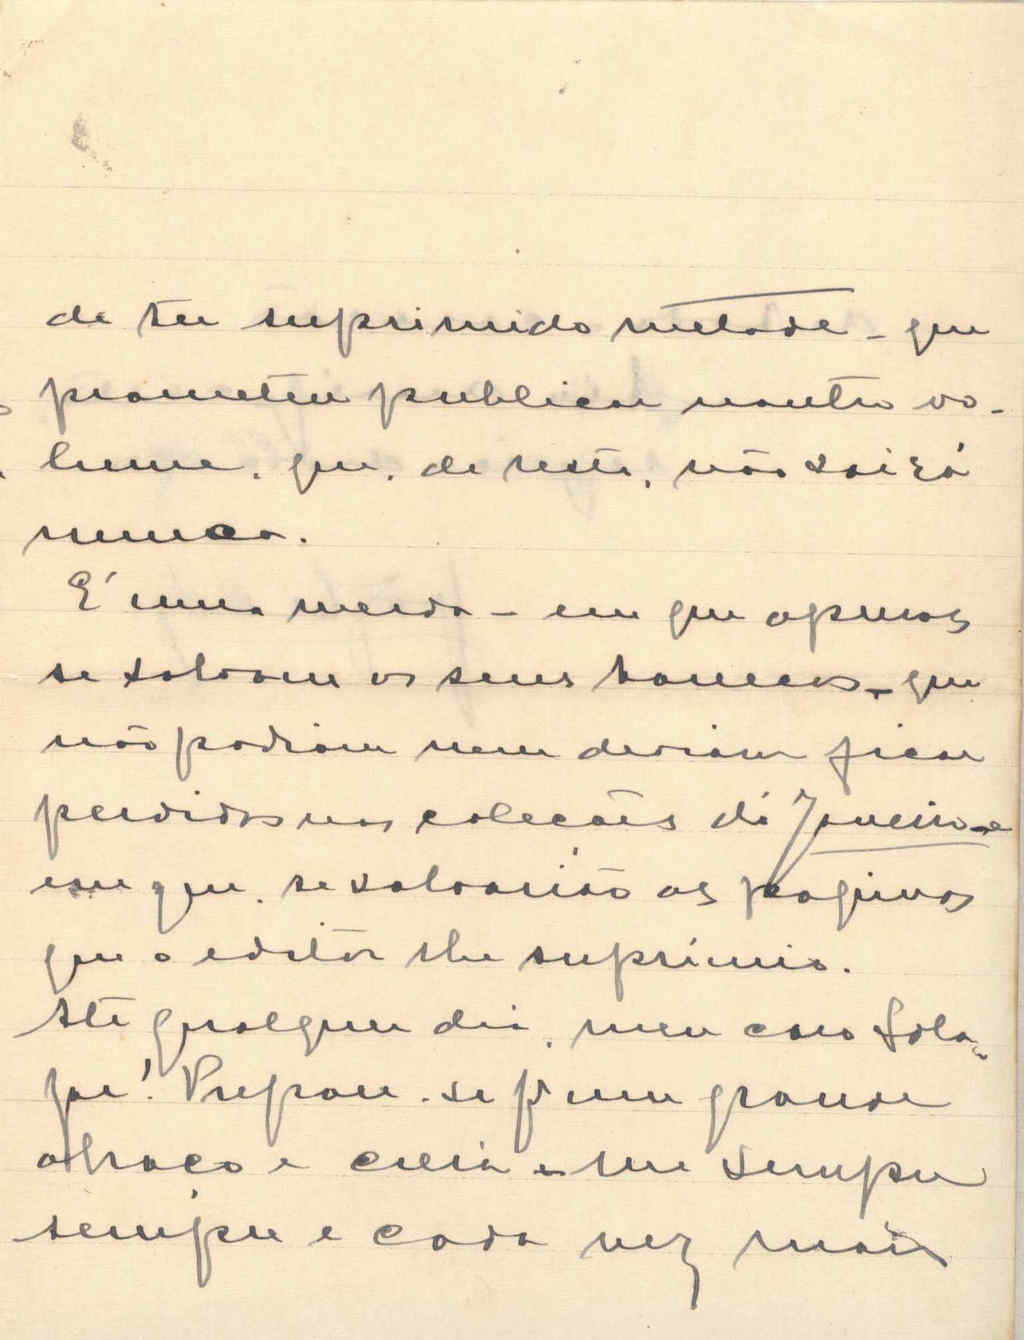 de ter suprimido metade - que
prometeu publicar noutro vo-
lume, que, de resto, não sairá
nunca.
É uma merda - em que apenas
se salvam os seus bonecos - que
não podiam nem deviam ficar
perdidos nas coleções de Janeiro - e
em que se salvarião as paginas
que o editor lhe suprimio.
Até qualquer dia, meu caro
Prepare-se pª um grande
abraço e creia-me sempre
sempre e cada vez mais